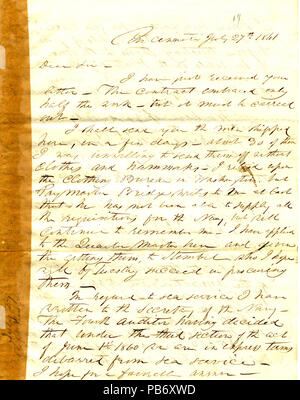 Cincinnati July 27th 1861
Dear Sir -
I have just received your
letter - The contract embraced only
half the work - but it must be carried
out -
I shall send you the men shipped
here, in a few days - about 30 of them
I was unwilling to send them off without
Clothes and Hammocks - I relied upon
the Clothing Bureau in Washington but
Pay Master Bridge writes to me at last
that he has not been able to supply all
the requisitions for the Navy, but will
continue to remember me - I have applied
to the Quarter Master here and
the getting them, to who I hope
will by Tuesday succeed in procuring
them -
In regard to sea service I have
written to the Secretary of the Navy -
The Fourth Auditor having decided
that under the third section of the act
of June 1st 1860 we are in express terms
debarred from sea service -
I hope for a favorable answer -
alamy
Image ID: PB6XWD
www.alamy.com